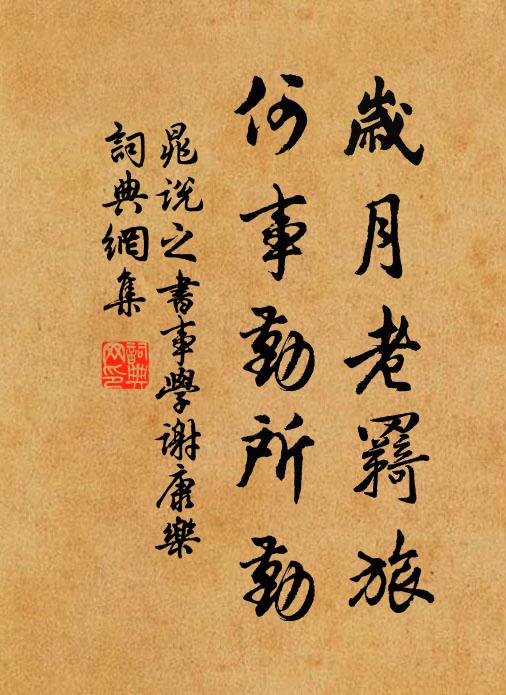 歲月老羇旅
何事勤所勤
晁說之書事學謝康樂
詞典網集
詞典網印